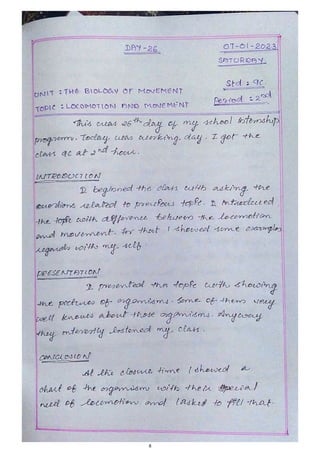 DAY-26
07-01-2023
SATURDAY
UNIT : THE BIOLOGY OF MOVEMENT
Std : 9C
TOPIC : LOCOMOTION AND MOVEMENT
Peeroed : 2nd
This was 26th day of my school Internship
programm. Today was working day. I got the
class 9C at 2nd hour.
INTRODUCTION
I begioned the class with asking the
questions related to previous topic. I introduced
the topic with difference between the locomotion
and movement. for that I showed some examples
regards with my self
PRESENTATION
I presented the topic with showing
the pectures of organisms. Some of them very
well knows about those organisms. Anyway
they interestly lestened my class.
CONCLUSION
At the closure time I showed a
chart of the organism with their special
need of locomotion and I asked to fill that
8